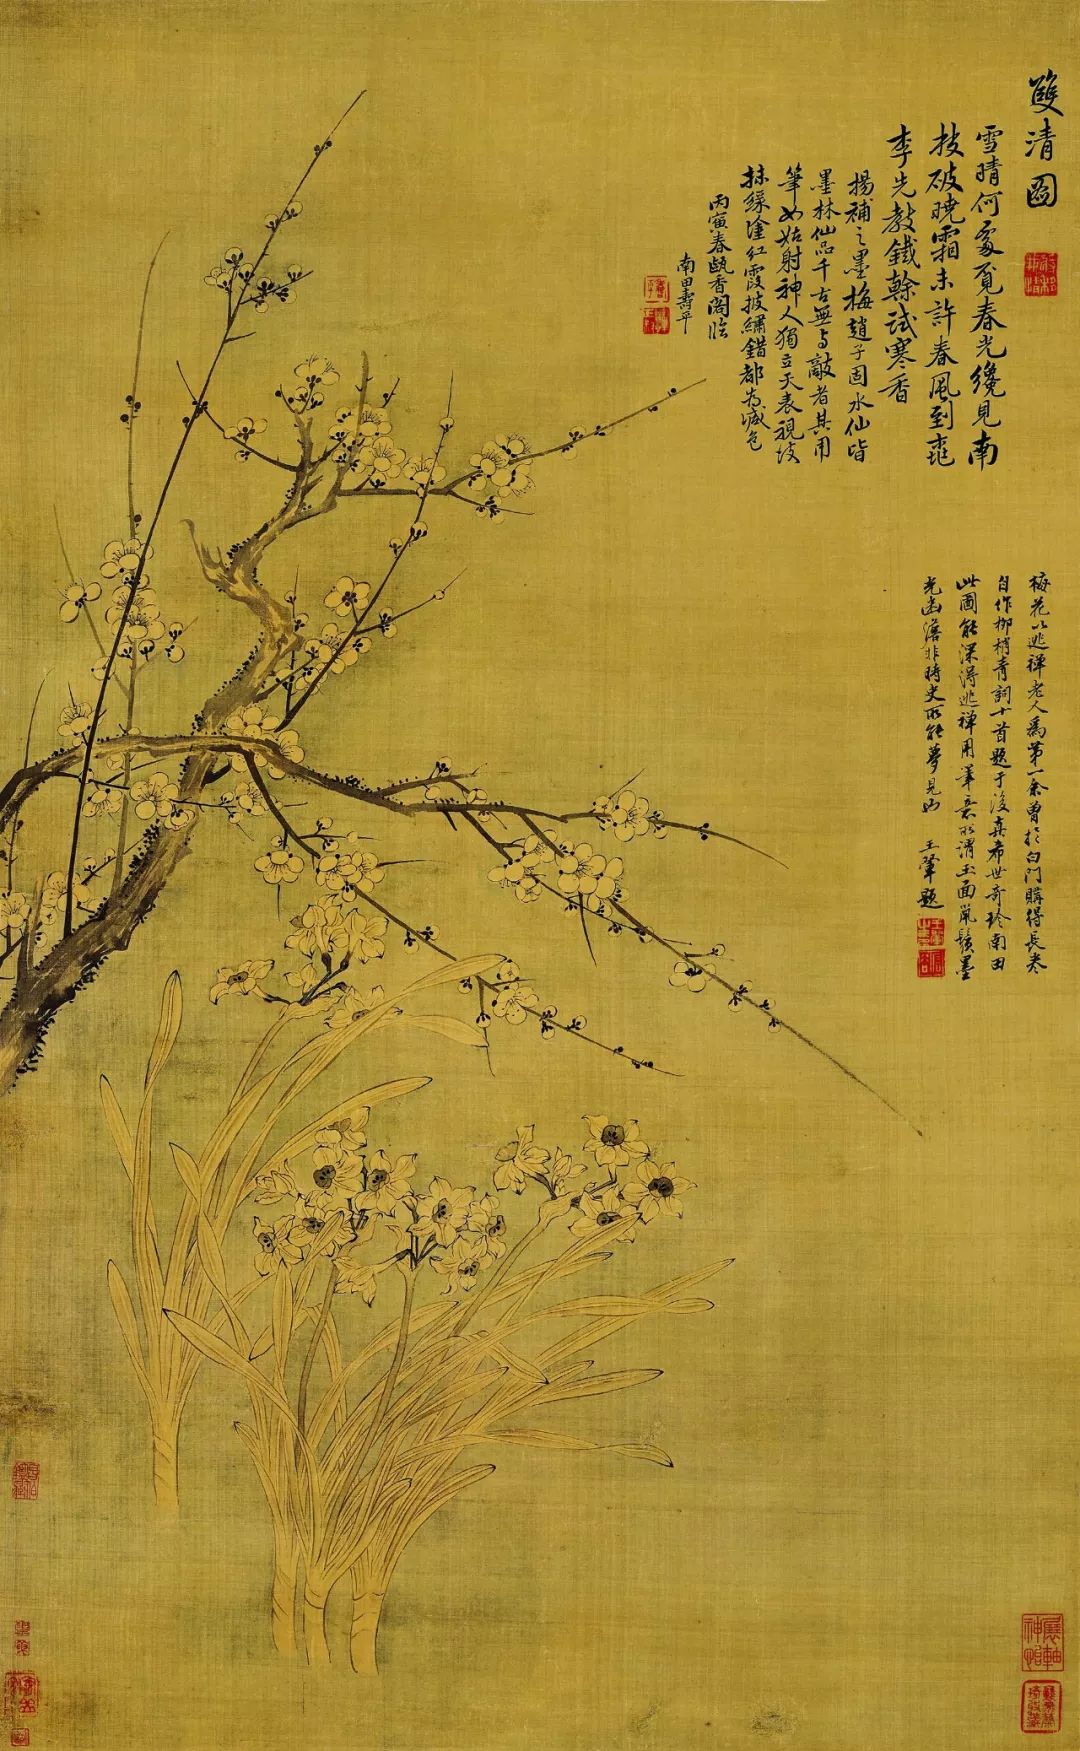 雙清圖
雪晴何處覓春光纔見南
枝破曉霜未許春風到桃
李先教鐵幹試寒香
楊補之墨梅趙子固水仙皆
墨林仙品千古無与敵者其用
筆如姑射神人獨立天表視坡
抹綵塗紅霞披繡錯都為減色
丙寅春甌香閣臨
南田壽平
梅花以逃禪老人為第一余曾於白門購得長卷
自作柳梢青詞十首題于後真希世奇珍南田
此圖能深得逃禪用筆意所謂玉面鼠鬚墨
光幽澹非時史所能夢見也
王翬題
展軸
神怡